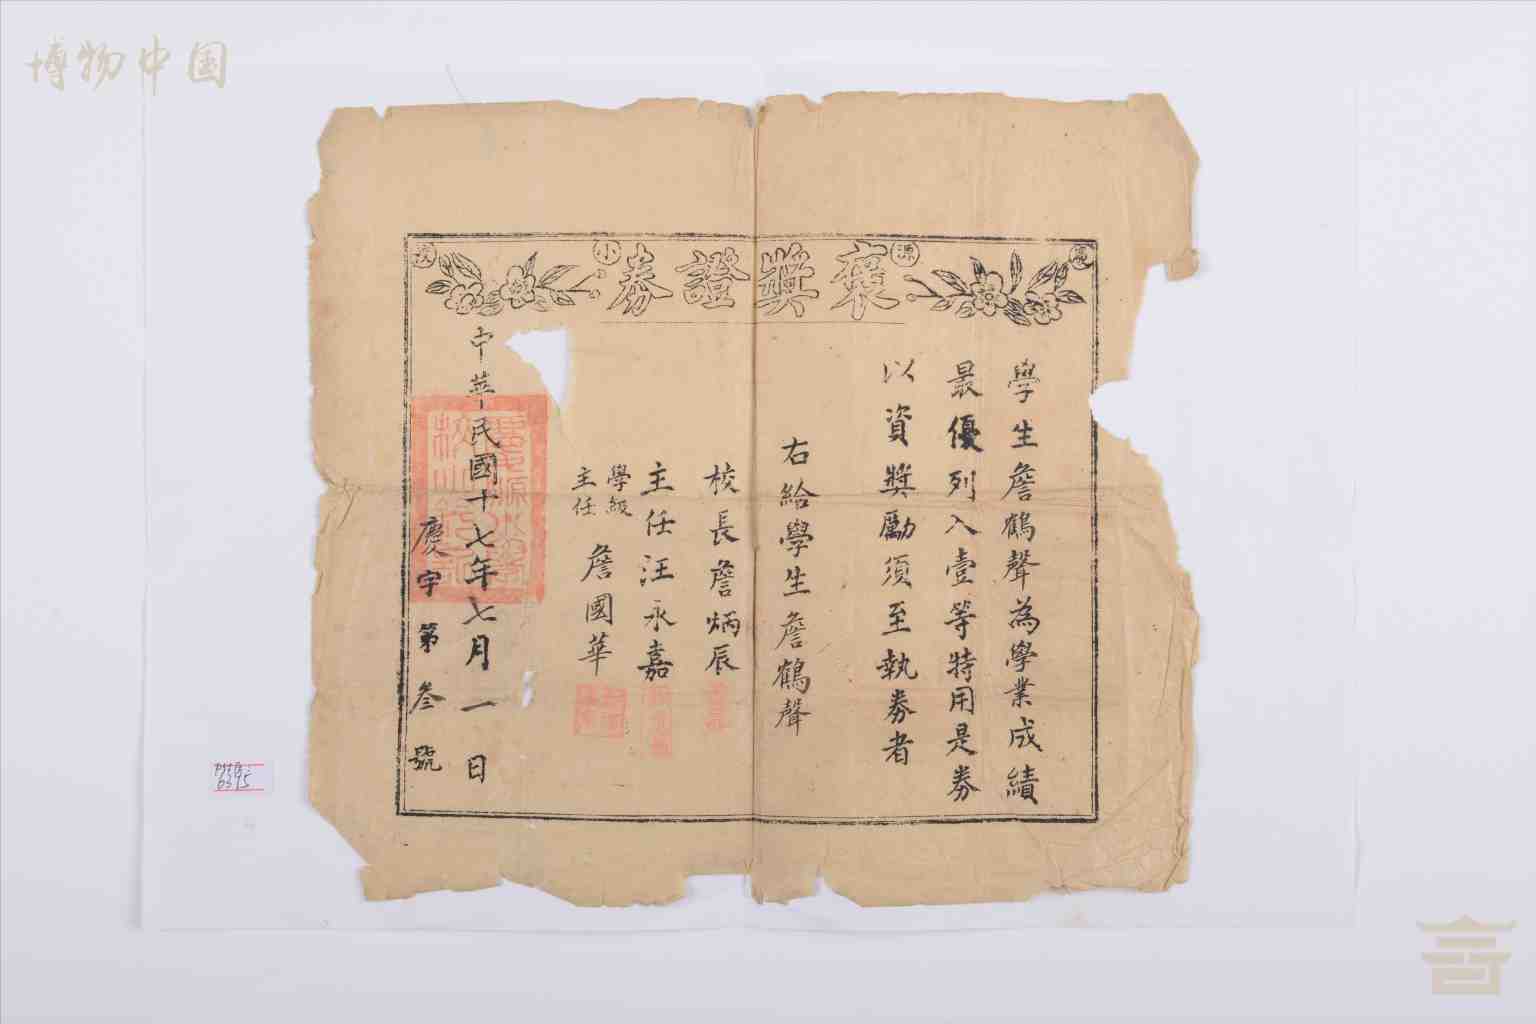 博物中国
褒獎證劵
源
小
學生詹鶴聲為學業成績
最優列入壹等特用是劵
以資獎勵須至執劵者
右給學生詹鶴聲
校長詹炳辰
主任汪永嘉
學級
主任
詹國華
中華民國十七年七月一日
慶字第叁號